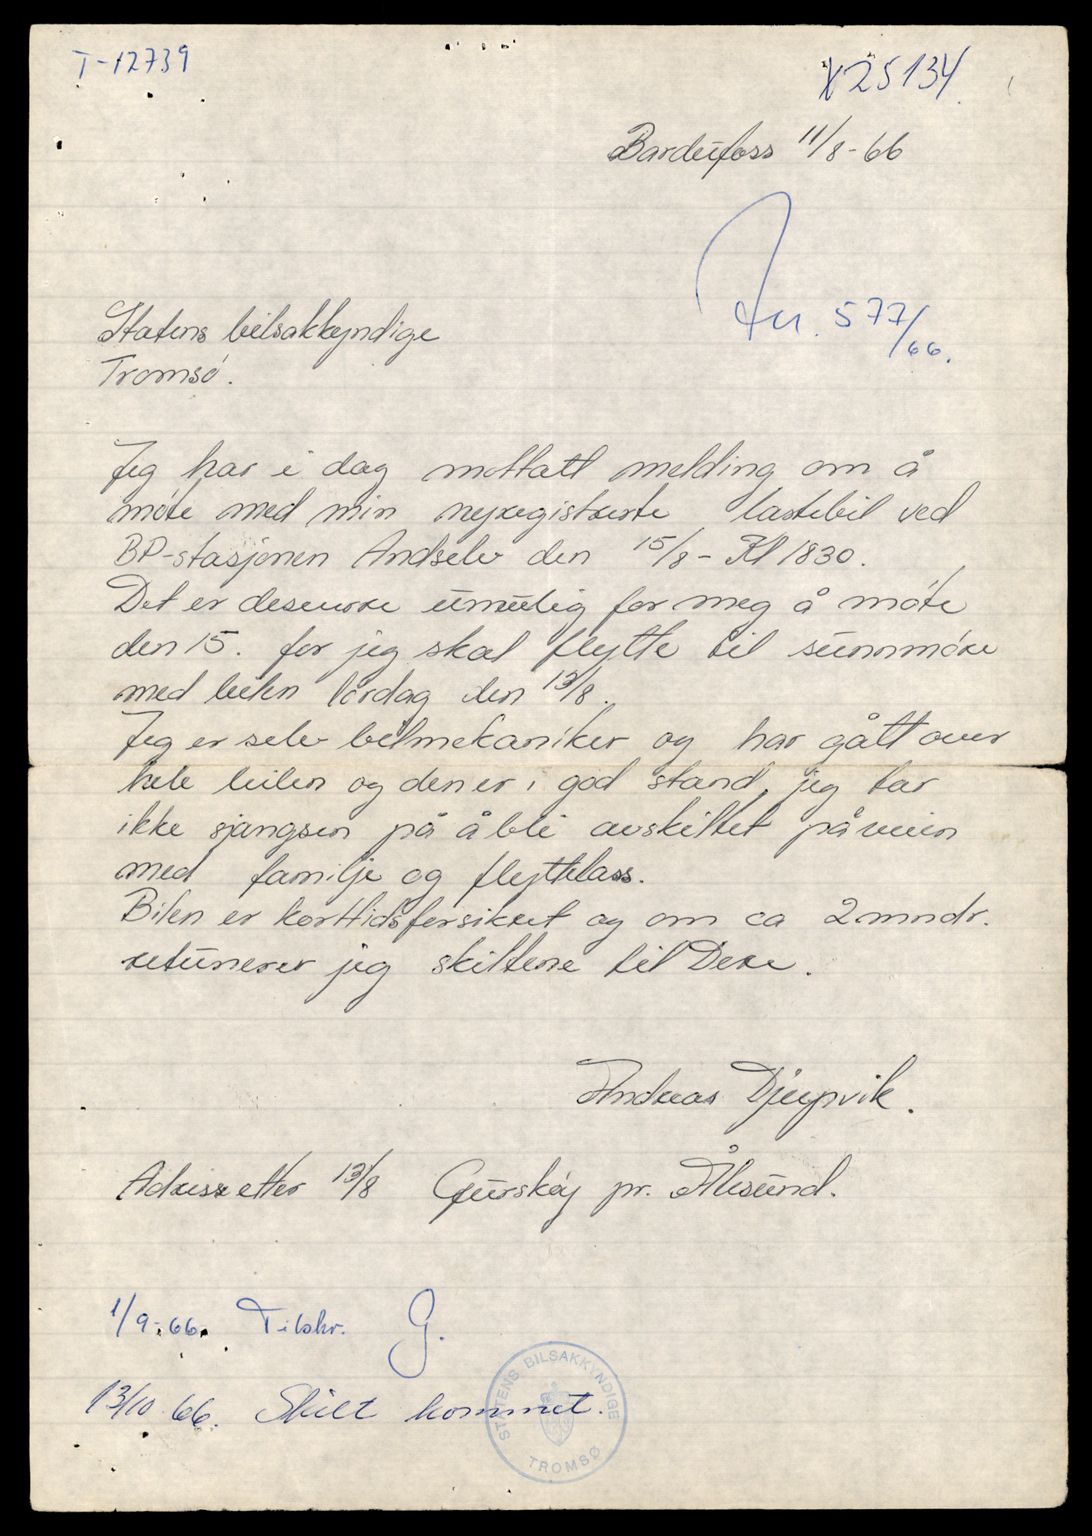 T-12739
X25134
Bardufoss 11/8-66
Jnr. 577/66.
Statens bilsakkyndige
Tromsø.
Jeg har i dag mottatt melding om å
møte med min nyregistrerte lastebil ved
BP-stasjonen Andselv den 15/8 - Kl 1830.
Det er desverre umulig for meg å møte
den 15. for jeg skal flytte til sunnmøre
med bilen lørdag den 13/8.
Jeg er selv bilmekaniker og har gått over
hele bilen og den er i god stand, jeg tar
ikke sjangsen på å bli avskiltet på veien
med familje og flyttelass.
Bilen er korttidsforsikret og om ca 2 mndr.
returnerer jeg skiltene til Dere.
Andreas Djupvik.
Adresse etter 13/8 Gurskøy pr. Ålesund.
1/9-66. Tilskr. G.
13/10 66. Skilt kommet.
STATENS BILSAKKYNDIGE
TROMSØ